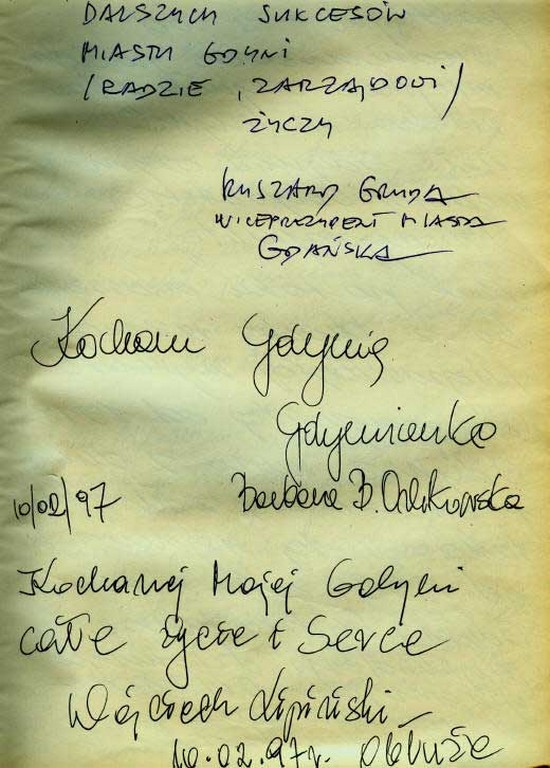 DALSZYCH SUKCESÓW
MIASTU GDYNI
/RADZIE, ZARZĄDOWI/
ŻYCZY
RYSZARD GRUDA
WICEPREZYDENT MIASTA
GDAŃSKA
Kocham Gdynię
Gdynianka
10/02/97 Barbara B.
Kochanej Mojej Gdyni
całe życie i Serce
Wojciech Lipiński
10.02.97r. Obłuże